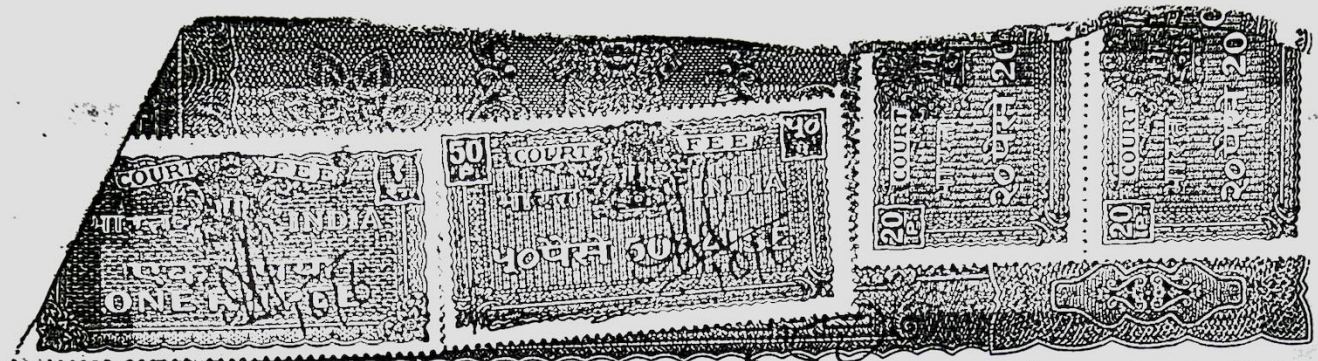 COURT FEE १
भारत INDIA
एक रुपया
ONE RUPEE
50 P. COURT FEE ५०
भारत INDIA
५० पैसे 50 PAISE
COURT
भारत
२० पैसे 20
20 P.
COURT
भारत
२० पैसे 20
20 P.